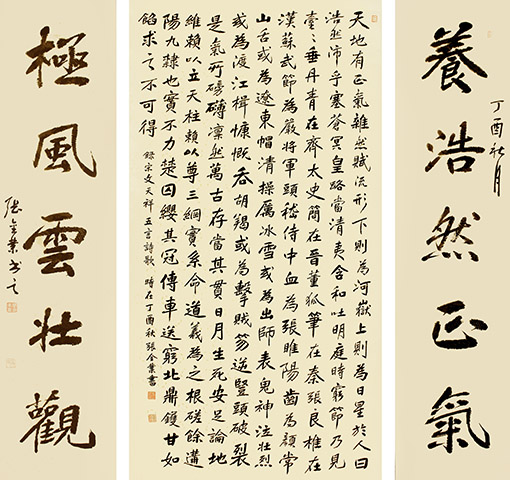 養浩然正氣
丁酉秋月
天地有正氣雜然賦流形下則為河嶽上則為日星於人曰
浩然沛乎塞蒼冥皇路當清夷含和吐明庭時窮節乃見
壹〻垂丹青在齊太史簡在晉董狐筆在秦張良椎在
漢蘇武節為嚴將軍頭嵇侍中血為張睢陽齒為顏常
山舌或為遼東帽清操厲冰雪或為出師表鬼神泣壯烈
或為渡江楫慷慨吞胡羯或為擊賊笏逆豎頭破裂
是氣所磅礴凜然萬古存當其貫日月生死安足論地
維賴以立天柱賴以尊三綱實系命道義為之根磋餘遘
陽九隸也實不力楚囚纓其冠傳車送窮北鼎鑊甘如
飴求之不可得 錄宋文天祥五言詩歌 時在丁酉秋張金業書
極風雲壯觀
張金業書之